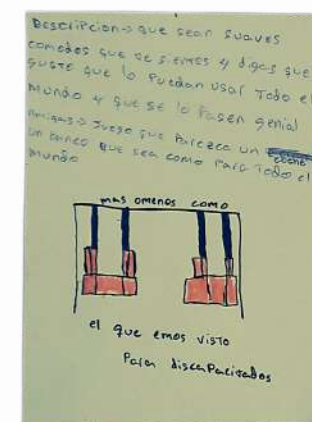 Descripcion→ que sean suaves
comodos que se sientes y digas que
guste que lo puedan usar Todo el
mundo y que se lo pasen genial
amigas→ Juego que parezca un coche
un banco que sea como para Todo el
mundo
mas omenos como
el que emos visto
Para discapacitados